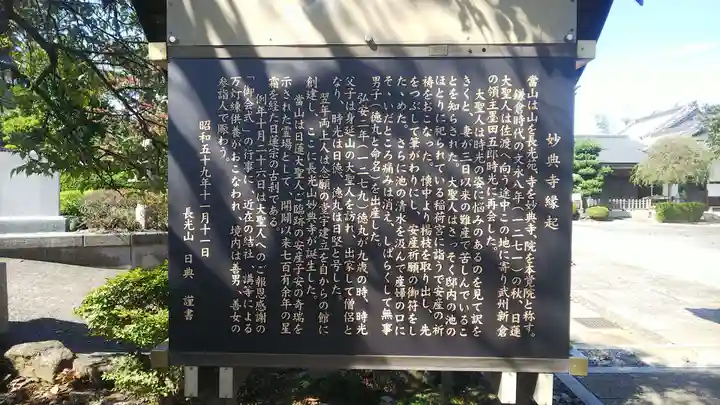 妙典寺縁起
當山は山を長光苑、寺を妙典寺、院を本覚院と称す。
鎌倉時代の文永八年(一二七一)の秋、日蓮
大聖人は佐渡へ向う途中この地に寄り武州新倉
の領主墨田五郎時光と再会した。
大聖人は時光の姿に悩みのあるのを見て訳を
きくと、妻が三日以来の難産で苦しんでいるこ
とを知らされた。大聖人はさっそく邸内の池の
ほとりに祀られている稲荷宮に詣うで安産の祈
祷をおこなった。懐中より楊枝を取り出し、先
をつぶして筆がわりに、安産祈願の御符をし
た、めた。さらに池の清水を汲んで産婦の口に
そ、いだところ痛みは消え、しばらくして無事
男子(徳丸と命名)を出産した。
弘安二年(一二七九)徳丸が九歳の時、時光
父子は身延山に大聖人を訪れ、出家して僧侶と
なり、時光は日徳、徳丸は日堅と号した。
翌年両上人は念願の堂宇建立を自からの館に
創建し、ここに長光山妙典寺が誕生した。
當山は日蓮大聖人ご臨跡の安産子安の奇瑞を
示された霊場として、開闢以来七百有余年の星
霜を経た日蓮宗の古刹である
例年十月二十六日は大聖人へのご報恩感謝の
「御会式」の行事に、近在の結社、講寺による
万灯練供養がおこなわれ、境内は善男、善女の
参詣人で賑わう。
昭和五十九年十一月十一日
長光山 日典 謹書